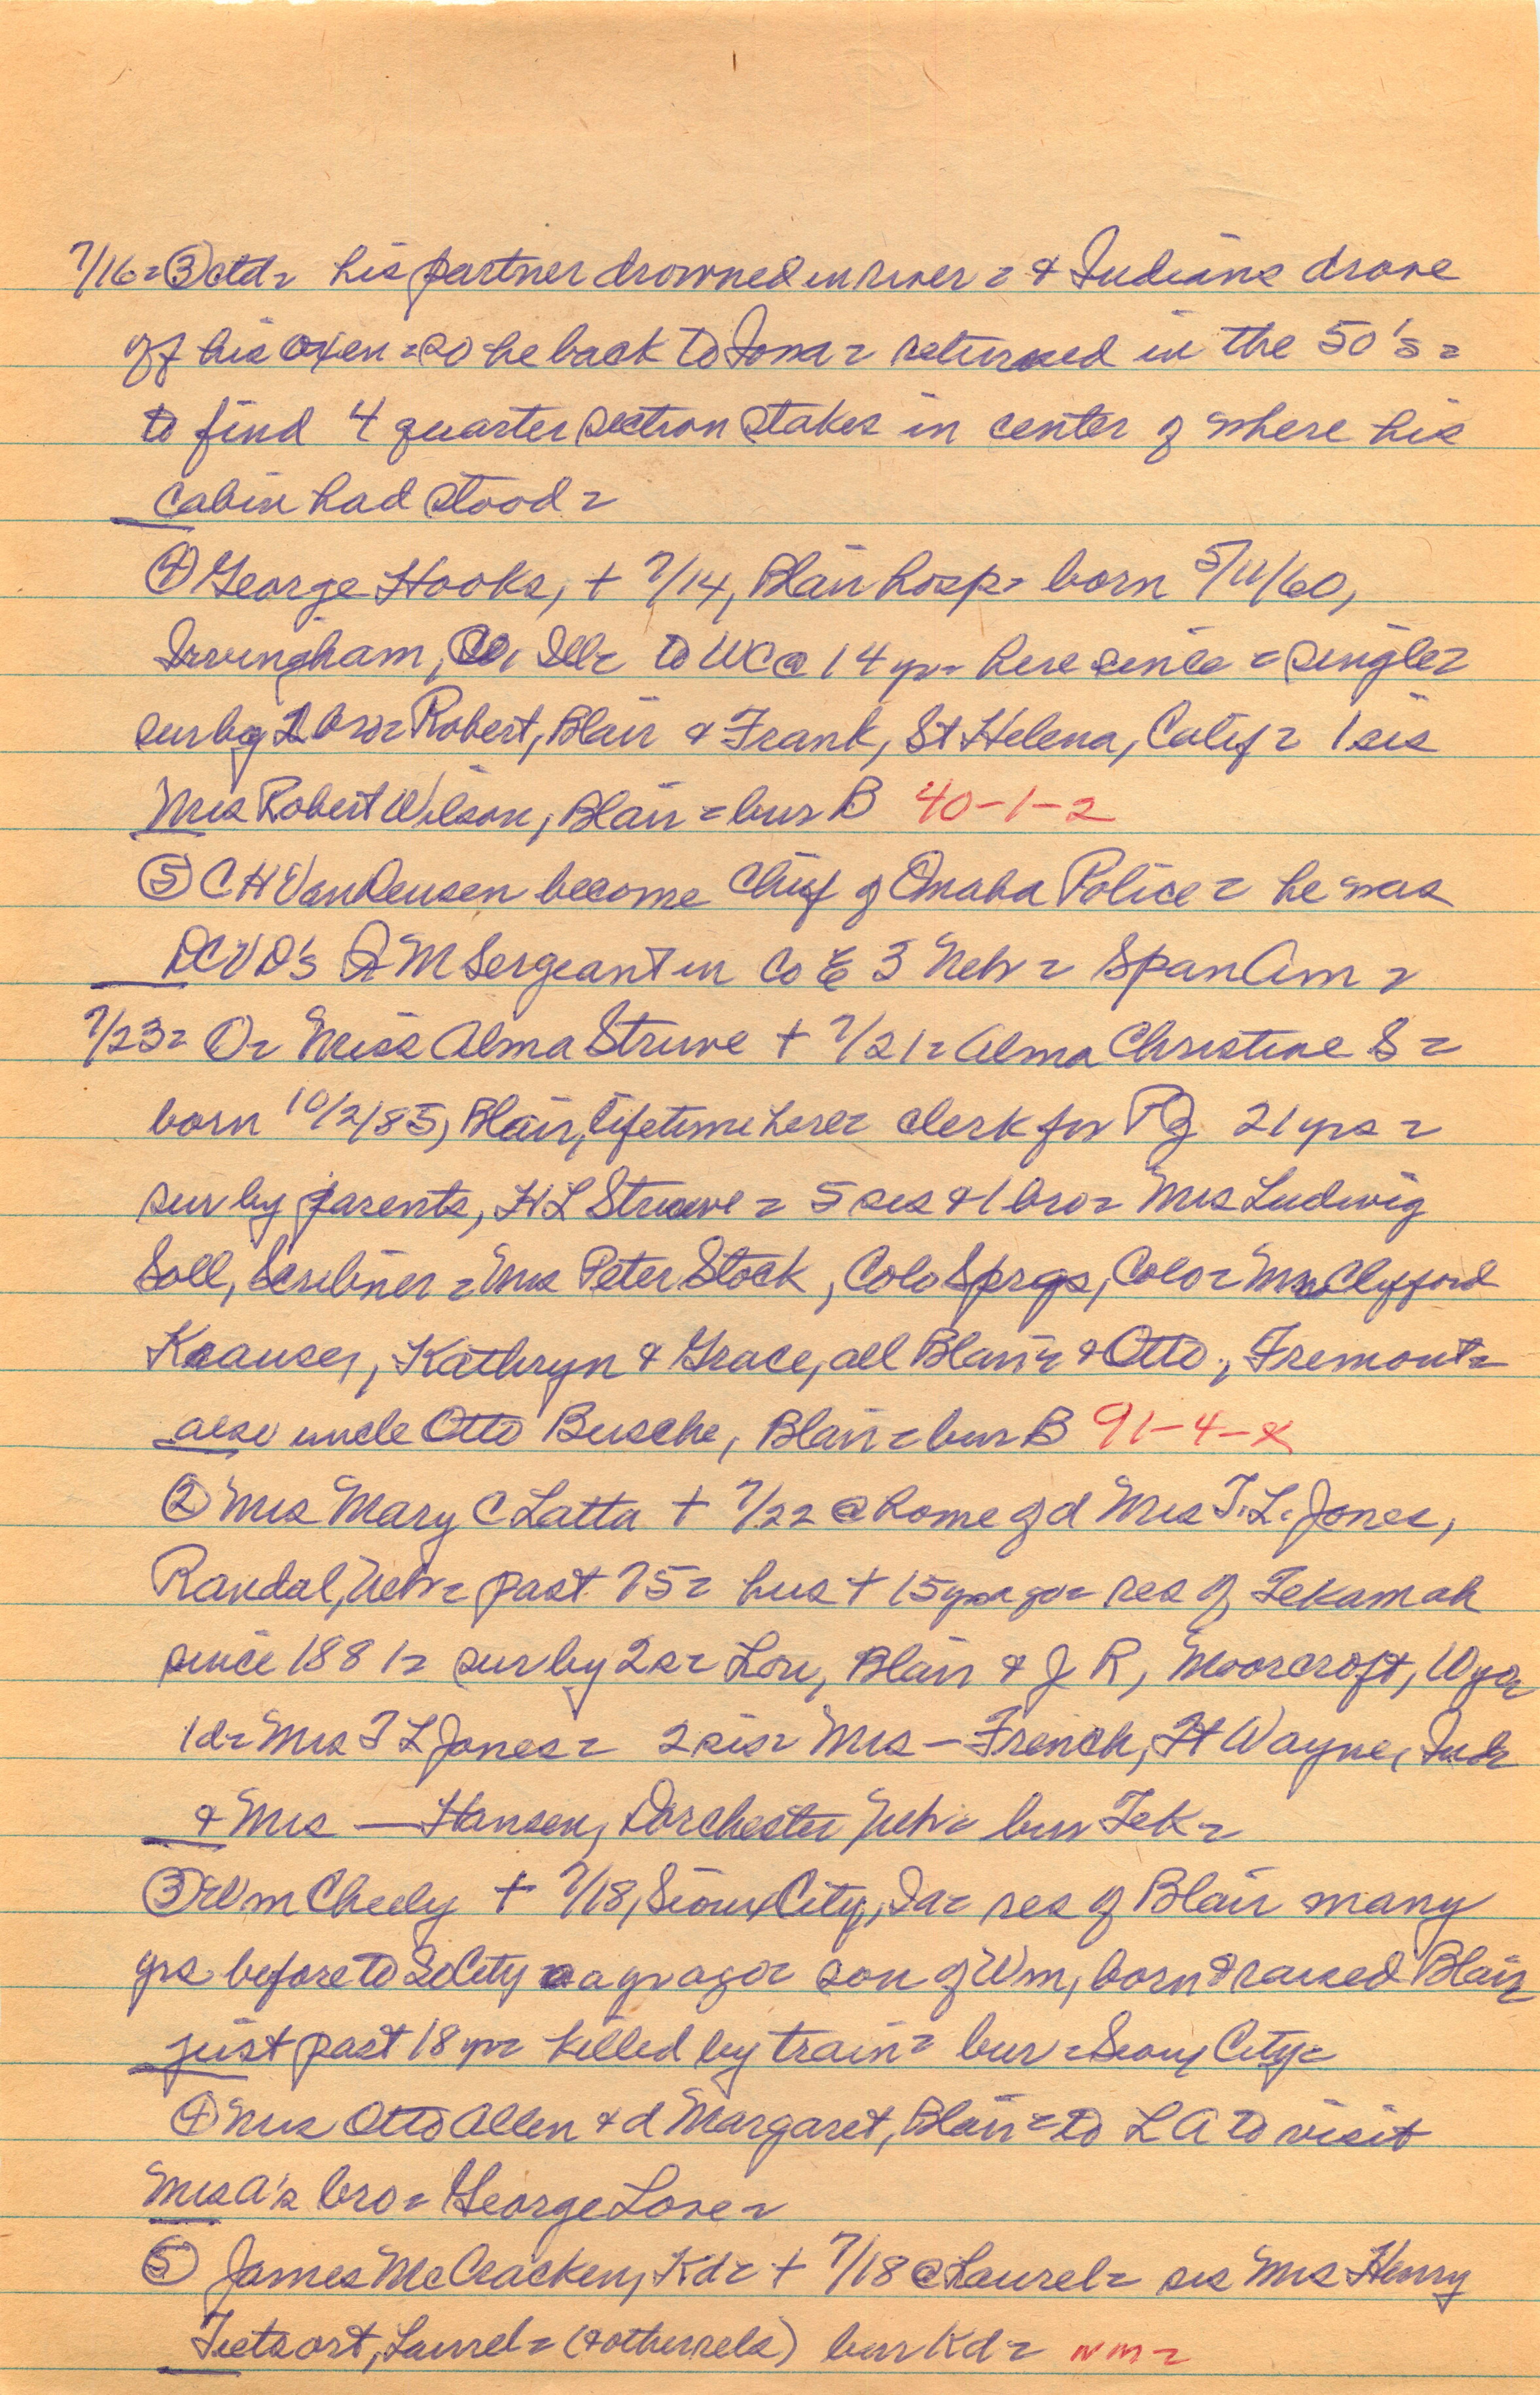 7/16= ③ctd= his partner drowned in river = & Indians drove
off his oxen = so he back to Iowa = returned in the 50's =
to find 4 quarter section stakes in center of where his
cabin had stood =
④ George Hooks, + 7/14, Blair hosp= born 5/11/60,
Irvingham, Co, Ill= to WC @ 14 yr= here since = single=
sur by 2 bro= Robert, Blair & Frank, St Helena, Calif= 1 sis
Mrs Robert Wilson, Blair = bur B 40-1-2
⑤ C H VanDeusen become Chief of Omaha Police = he was
DCVD's QM Sergeant in Co E 3 Nebr = Span Am =
7/23= O= Miss Alma Struve + 7/21= Alma Christine S =
born 10/2/85, Blair, lifetime here= clerk for PG 21 yrs =
sur by parents, H L Struve = 5 sis & 1 bro= Mrs Ludwig
Soll, Scribner = Mrs Peter Stock, Colo Sprgs, Colo = Mrs Clifford
Krause, Kathryn & Grace, all Blair= & Otto, Fremont=
also uncle Otto Busche, Blair = bur B 91-4-x
② Mrs Mary C Latta + 7/22 @ home of d Mrs T. L. Jones,
Randal, Nebr= past 75= hus + 15 yrs ago= res of Tekamah
since 1881= sur by 2 s= Lou, Blair & J R, Moorcroft, Wyo=
1 d= Mrs T L Jones= 2 sis= Mrs — French, Ft Wayne, Ind=
& Mrs — Hansen, Dorchester Nebr= bur Tek=
③ Wm Cheely + 7/18, Sioux City, Ia= res of Blair many
yrs before to So City a yr ago= son of Wm, born & raised Blair
just past 18 yr= killed by train= bur = Sioux City=
④ Mrs Otto Allen & d Margaret, Blair = to L A to visit
Mrs A's bro = George Love =
⑤ James McCracken, Kd= + 7/18 @ Laurel= sis Mrs Henry
Teetsort, Laurel= (& other rels) bur Kd= NM=